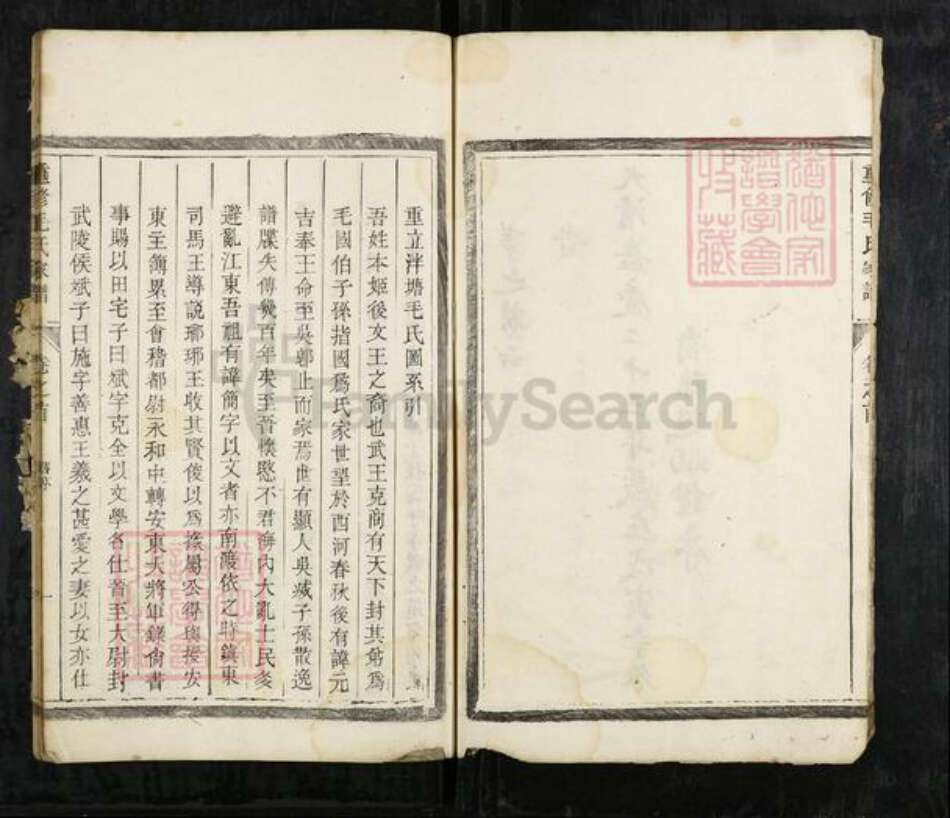 重修毛氏家譜
卷之首
重立泮塘毛氏圖系引
吾姓本姬後文王之裔也武王克商有天下封其弟爲
毛國伯子孫指國爲氏家世望於西河春秋後有諱元
吉奉王命至吳郭止而家焉世有顯人吳滅子孫散逸
譜牒失傳幾百年矣至晉懷愍不君海内大亂士民多
避亂江東吾祖有諱簡字以文者亦南渡依之時鎮東
司馬王導説瑯琊王收其賢俊以爲掾屬公得與授安
東主簿累至會稽都尉永和中轉安東大將軍錄尙書
事賜以田宅子曰斌字克全以文學各仕晉至大尉封
武陵侯斌子曰施字善惠王羲之甚愛之妻以女亦仕
重修毛氏家譜
卷之首
猶他家譜學會收藏
FamilySearch